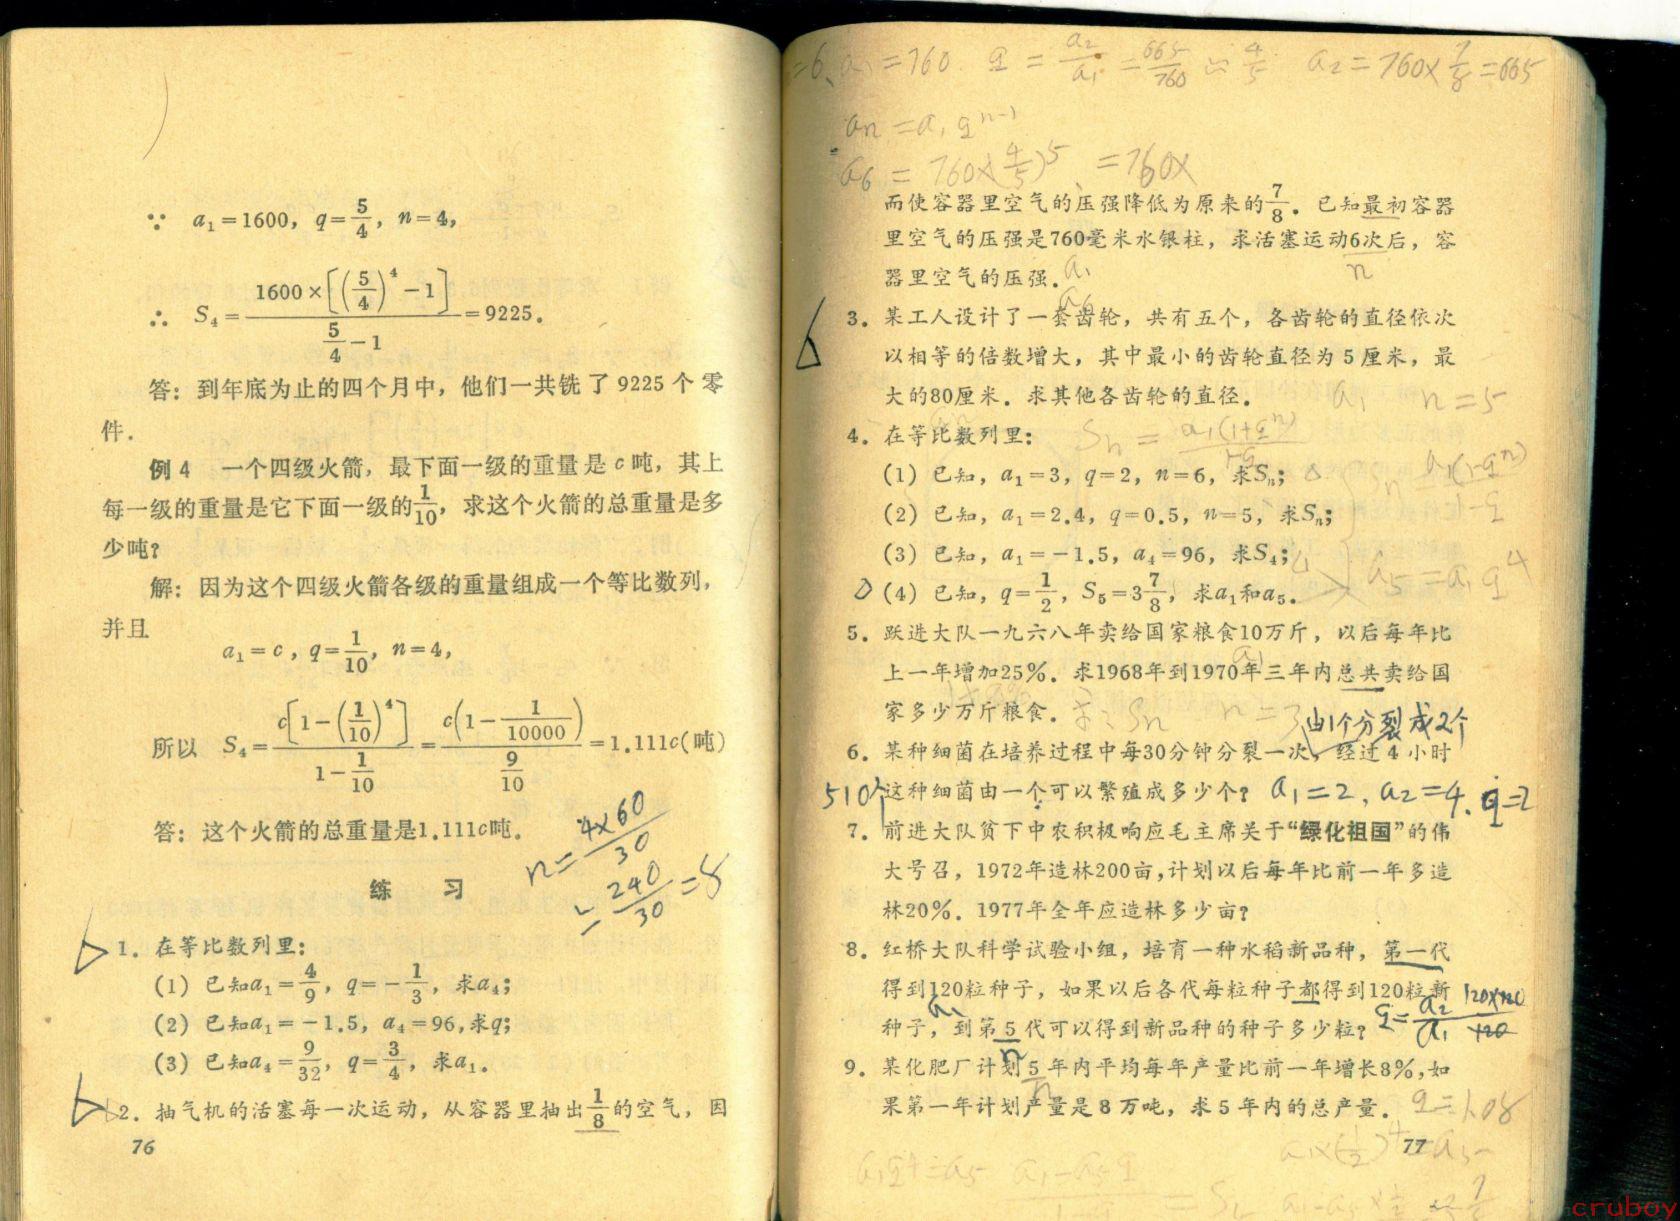 ∵ a₁=1600, q=5/4, n=4,
∴ S₄=1600×[(5/4)⁴-1]/(5/4-1)=9225.
答：到年底为止的四个月中，他们一共铣了9225个零
件.
例4 一个四级火箭，最下面一级的重量是c吨，其上
每一级的重量是它下面一级的1/10，求这个火箭的总重量是多
少吨?
解：因为这个四级火箭各级的重量组成一个等比数列，
并且
a₁=c, q=1/10, n=4,
所以 S₄=c[1-(1/10)⁴]/(1-1/10)=c(1-1/10000)/(9/10)=1.111c(吨)
答：这个火箭的总重量是1.111c吨.
n=4×60/30
=240/30=8
练 习
1. 在等比数列里：
(1) 已知a₁=4/9, q=-1/3, 求a₄;
(2) 已知a₁=-1.5, a₄=96,求q;
(3) 已知a₄=9/32, q=3/4, 求a₁.
2. 抽气机的活塞每一次运动，从容器里抽出1/8的空气，因
76
=6, a₁=760 q=a₂/a₁=665/760≈4/5 a₂=760×7/8=665
an=a₁qⁿ⁻¹
a₆=760×(4/5)⁵=760×
而使容器里空气的压强降低为原来的7/8. 已知最初容器
里空气的压强是760毫米水银柱，求活塞运动6次后，容
n
器里空气的压强.
a₁
a₆
3. 某工人设计了一套齿轮，共有五个，各齿轮的直径依次
以相等的倍数增大，其中最小的齿轮直径为5厘米，最
大的80厘米. 求其他各齿轮的直径.
a₁ n=5
4. 在等比数列里：
(1) 已知, a₁=3, q=2, n=6, 求Sₙ;
(2) 已知, a₁=2.4, q=0.5, n=5, 求Sₙ;
(3) 已知, a₁=-1.5, a₄=96, 求S₄;
(4) 已知, q=1/2, S₅=3 7/8, 求a₁和a₅.
a₅=a₁q⁴
5. 跃进大队一九六八年卖给国家粮食10万斤，以后每年比
a₁
上一年增加25%. 求1968年到1970年三年内总共卖给国
家多少万斤粮食.
Sn n=3
由1个分裂成2个
6. 某种细菌在培养过程中每30分钟分裂一次，经过4小时
这种细菌由一个可以繁殖成多少个?
510个
a₁=2, a₂=4. q=2
7. 前进大队贫下中农积极响应毛主席关于“绿化祖国”的伟
大号召，1972年造林200亩,计划以后每年比前一年多造
林20%. 1977年全年应造林多少亩?
8. 红桥大队科学试验小组，培育一种水稻新品种，第一代
得到120粒种子，如果以后各代每粒种子都得到120粒新
a₁
种子，到第5代可以得到新品种的种子多少粒?
n
q=a₂/a₁ 120×120/120
9. 某化肥厂计划5年内平均每年产量比前一年增长8%,如
n
果第一年计划产量是8万吨，求5年内的总产量.
q=1.08
77
a₁q⁴=a₅
cruboy